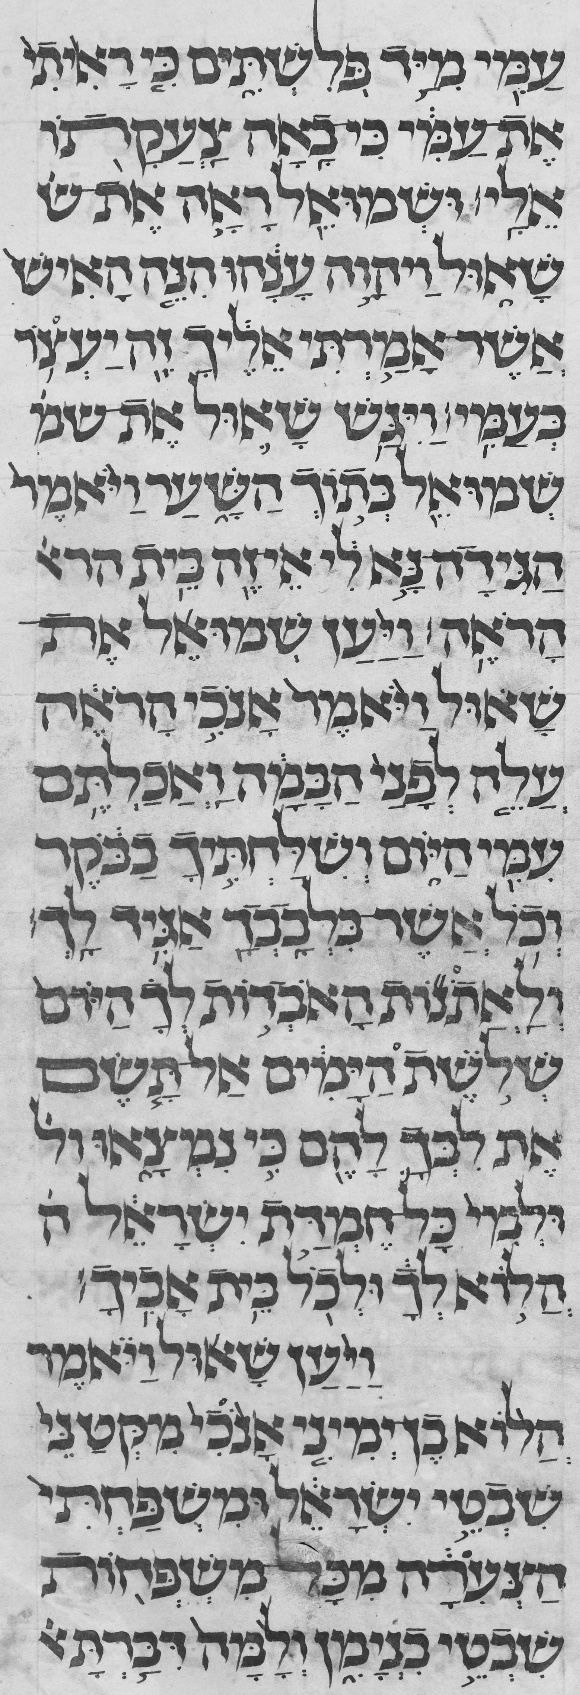 עַמִּי֙ מִיַּ֣ד פְּלִשְׁתִּ֔ים כִּ֤י רָאִ֙יתִי֙
אֶת־עַמִּ֔י כִּי־בָּ֥אָה צַעֲקָת֖וֹ
אֵלָֽי׃ וּשְׁמוּאֵ֖ל רָאָ֣ה אֶת־ש
שָׁא֑וּל וַיהוָ֣ה עָנָ֔הוּ הִנֵּ֤ה הָאִישׁ֙
אֲשֶׁ֣ר אָמַ֣רְתִּי אֵלֶ֔יךָ זֶ֖ה יַעְצֹ֥ר
בְּעַמִּֽי׃ וַיִּגַּ֥שׁ שָׁא֛וּל אֶת־שמ
שְׁמוּאֵ֖ל בְּת֣וֹךְ הַשָּׁ֑עַר וַיֹּ֙אמֶר֙
הַגִּֽידָה־נָּ֣א לִ֔י אֵי־זֶ֖ה בֵּ֥ית הרא
הָרֹאֶֽה׃ וַיַּ֨עַן שְׁמוּאֵ֜ל אֶת־
שָׁא֗וּל וַיֹּ֙אמֶר֙ אָנֹכִ֣י הָרֹאֶ֔ה
עֲלֵ֤ה לְפָנַי֙ הַבָּמָ֔ה וַאֲכַלְתֶּ֥ם
עִמִּ֖י הַיּ֑וֹם וְשִׁלַּחְתִּ֣יךָ בַבֹּ֔קֶר
וְכֹ֛ל אֲשֶׁ֥ר בִּֽלְבָבְךָ֖ אַגִּ֥יד לָֽךְ׃
וְלָאֲתֹנ֞וֹת הָאֹבְד֣וֹת לְךָ֗ הַיּוֹם֙
שְׁלֹ֣שֶׁת הַיָּמִ֔ים אַל־תָּ֧שֶׂם
אֶֽת־לִבְּךָ֛ לָהֶ֖ם כִּ֣י נִמְצָ֑אוּ ול
וּלְמִי֙ כָּל־חֶמְדַּ֣ת יִשְׂרָאֵ֔ל ה
הֲל֣וֹא לְךָ֔ וּלְכֹ֖ל בֵּ֥ית אָבִֽיךָ׃
וַיַּ֨עַן שָׁא֜וּל וַיֹּ֗אמֶר
הֲל֨וֹא בֶן־יְמִינִ֤י אָנֹ֙כִי֙ מִקְּטַנֵּי֙
שִׁבְטֵ֣י יִשְׂרָאֵ֔ל וּמִשְׁפַּחְתִּי֙
הַצְּעִרָ֔ה מִכָּֽל־מִשְׁפְּח֖וֹת
שִׁבְטֵ֣י בִנְיָמִ֑ן וְלָ֙מָּה֙ דִּבַּ֣רְתָּ א